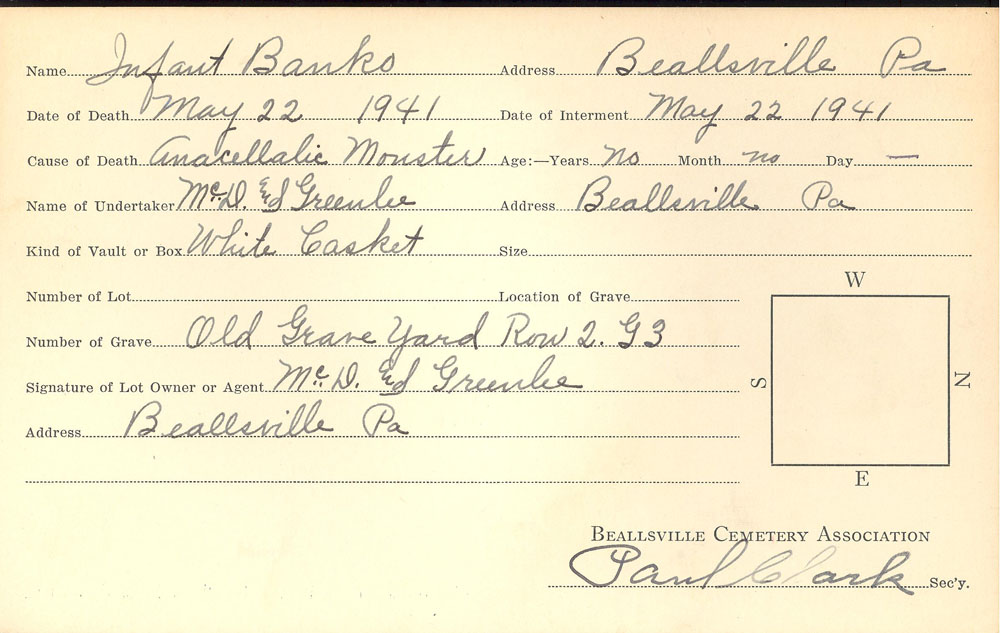 Name Infant Banko Address Beallsville Pa
Date of Death May 22 1941 Date of Interment May 22 1941
Cause of Death Anacellalic Monster Age:—Years no Month no Day —
Name of Undertaker McD. Ed Greenlee Address Beallsville Pa
Kind of Vault or Box White Casket Size
Number of Lot Location of Grave
W
Number of Grave Old Grave Yard Row 2. G3
Signature of Lot Owner or Agent McD. Ed Greenlee
S N
Address Beallsville Pa
E
BEALLSVILLE CEMETERY ASSOCIATION
Paul Clark Sec'y.